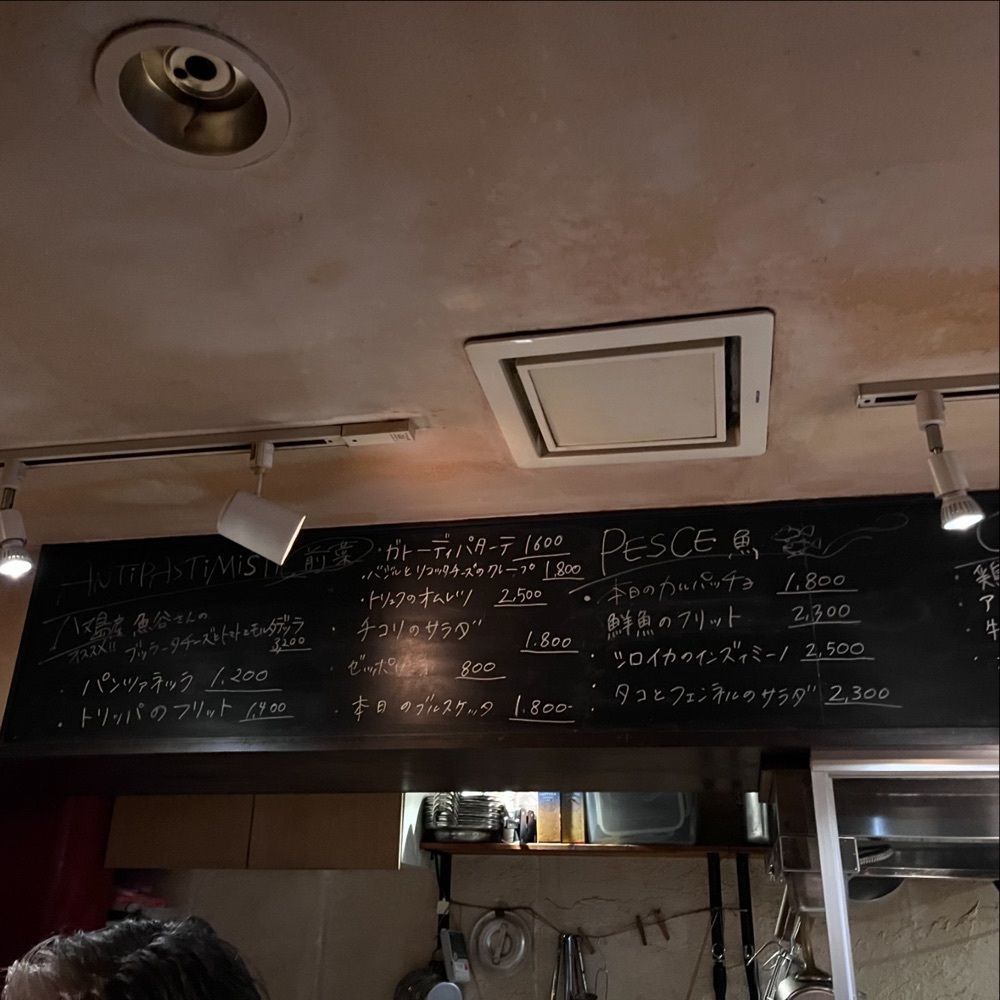 ANTIPASTI MISTI 前菜
八丈島産 魚谷さんの
オススメ!! ブッラータチーズとトマトとモルタデッラ
3200
・パンツァネッラ 1,200
・トリッパのフリット 1,400
・ガトーディパターテ 1600
・バジルとリコッタチーズのクレープ 1,800
・トリュフのオムレツ 2,500
・チコリのサラダ 1,800
・ゼッポリーネ 800
・本日のブルスケッタ 1,800-
PESCE 魚
・本日のカルパッチョ 1,800
鮮魚のフリット 2,300
・シロイカのインズィミーノ 2,500
・タコとフェンネルのサラダ 2,300
鶏
ア
牛